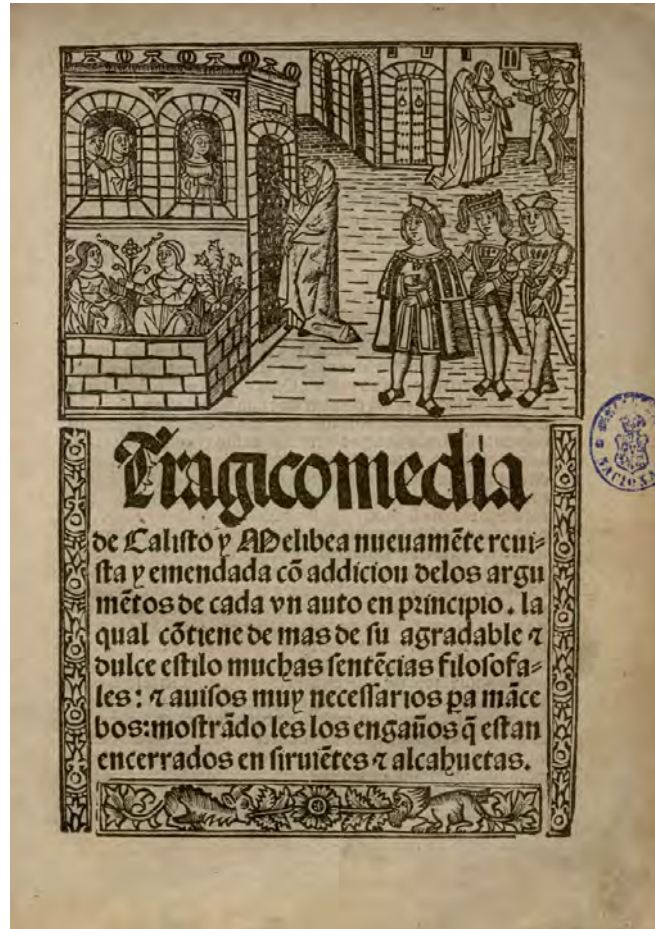 Tragicomedia
de Calisto y Melibea nueuamẽte reui⸗
sta y emendada cõ addicion delos argu
mẽtos de cada vn auto en principio. la
qual cõtiene de mas de su agradable ⁊
dulce estilo muchas sentẽcias filosofa⸗
les: ⁊ auisos muy necessarios pa mãce
bos: mostrãdo les los engaños q̃ estan
encerrados en siruiẽtes ⁊ alcahuetas.
NACIONA